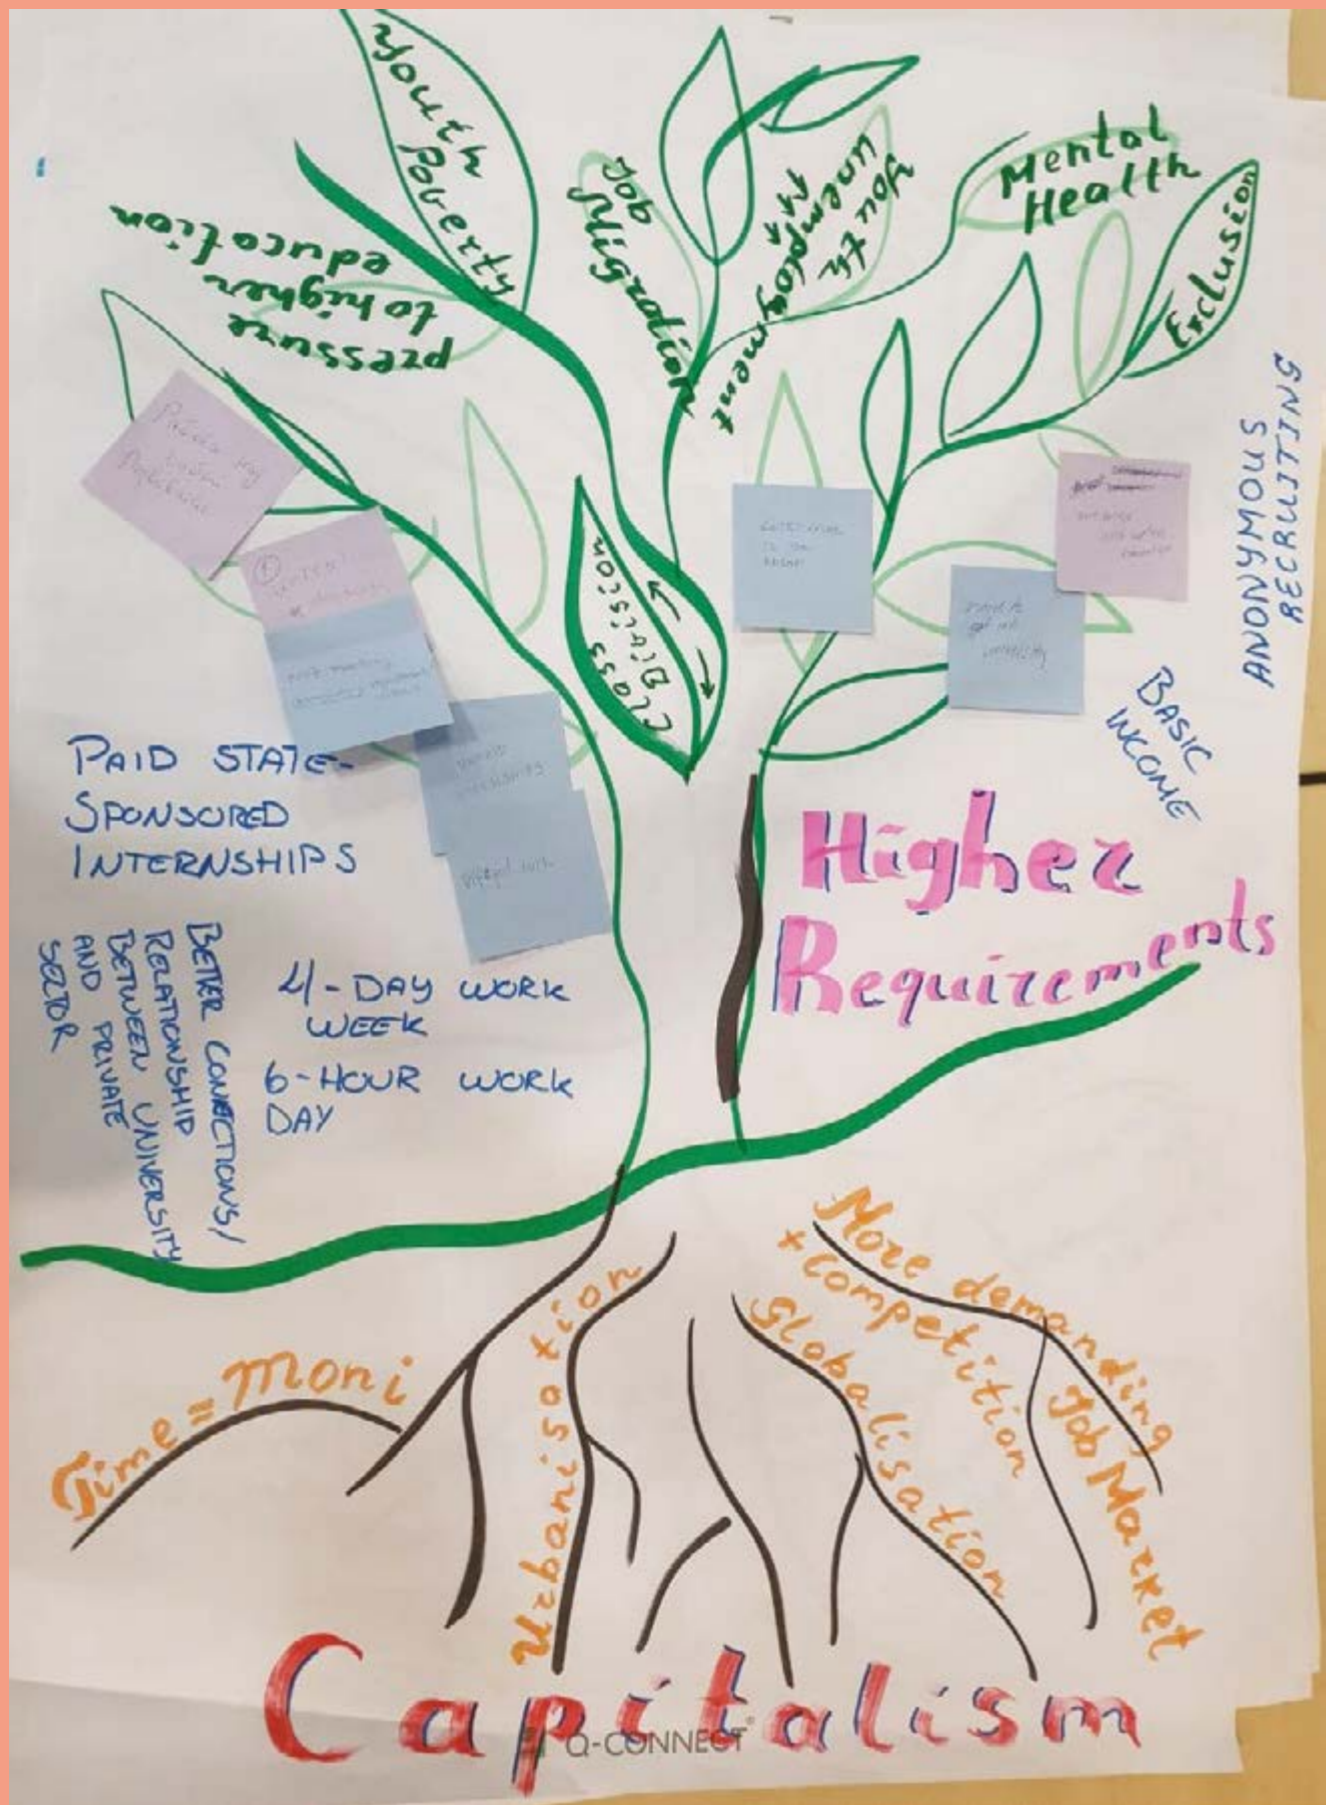 Youth
Poverty
pressure
to higher
education
Job
Migration
Youth
unemployment
Mental
Health
Exclusion
Class
Division
ANONYMOUS
RECRUITING
BASIC
INCOME
PAID STATE-
SPONSORED
INTERNSHIPS
Higher
Requirements
BETTER CONECTIONS/
RELATIONSHIP
BETWEEN UNIVERSITY
AND PRIVATE
SECTOR
4-DAY WORK
WEEK
6-HOUR WORK
DAY
Time = Moni
Urbanisation
Globalisation
More demanding
+ competition
Job Market
Capitalism
Q-CONNECT